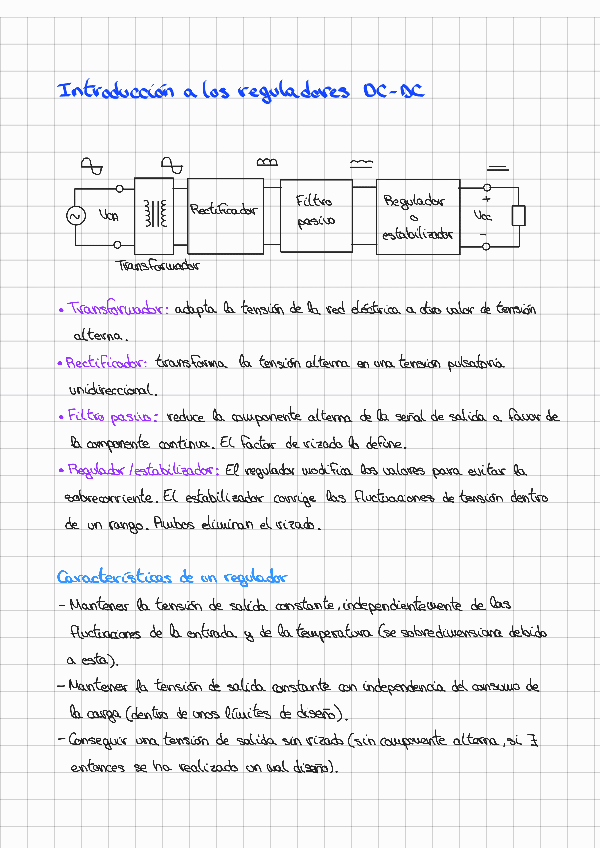 Introducción a los reguladores DC-DC
Rectificador
Filtro
pasivo
Regulador
o
estabilizador
+
Vcc
-
Transformador
• Transformador: adapta la tensión de la red eléctrica a otro valor de tensión
alterna.
• Rectificador: transforma la tensión alterna en una tensión pulsatoria
unidireccional.
• Filtro pasivo: reduce la componente alterna de la señal de salida a favor de
la componente continua. El factor de rizado lo define.
• Regulador/estabilizador: El regulador modifica los valores para evitar la
sobrecorriente. El estabilizador corrige las fluctuaciones de tensión dentro
de un rango. Ambos eliminan el rizado.
Características de un regulador
- Mantener la tensión de salida constante, independientemente de las
fluctuaciones de la entrada y de la temperatura (se sobredimensiona debido
a esta).
- Mantener la tensión de salida constante con independencia del consumo de
la carga (dentro de unos límites de diseño).
- Conseguir una tensión de salida sin rizado (sin componente alterna, si ∃
entonces se ha realizado un mal diseño).